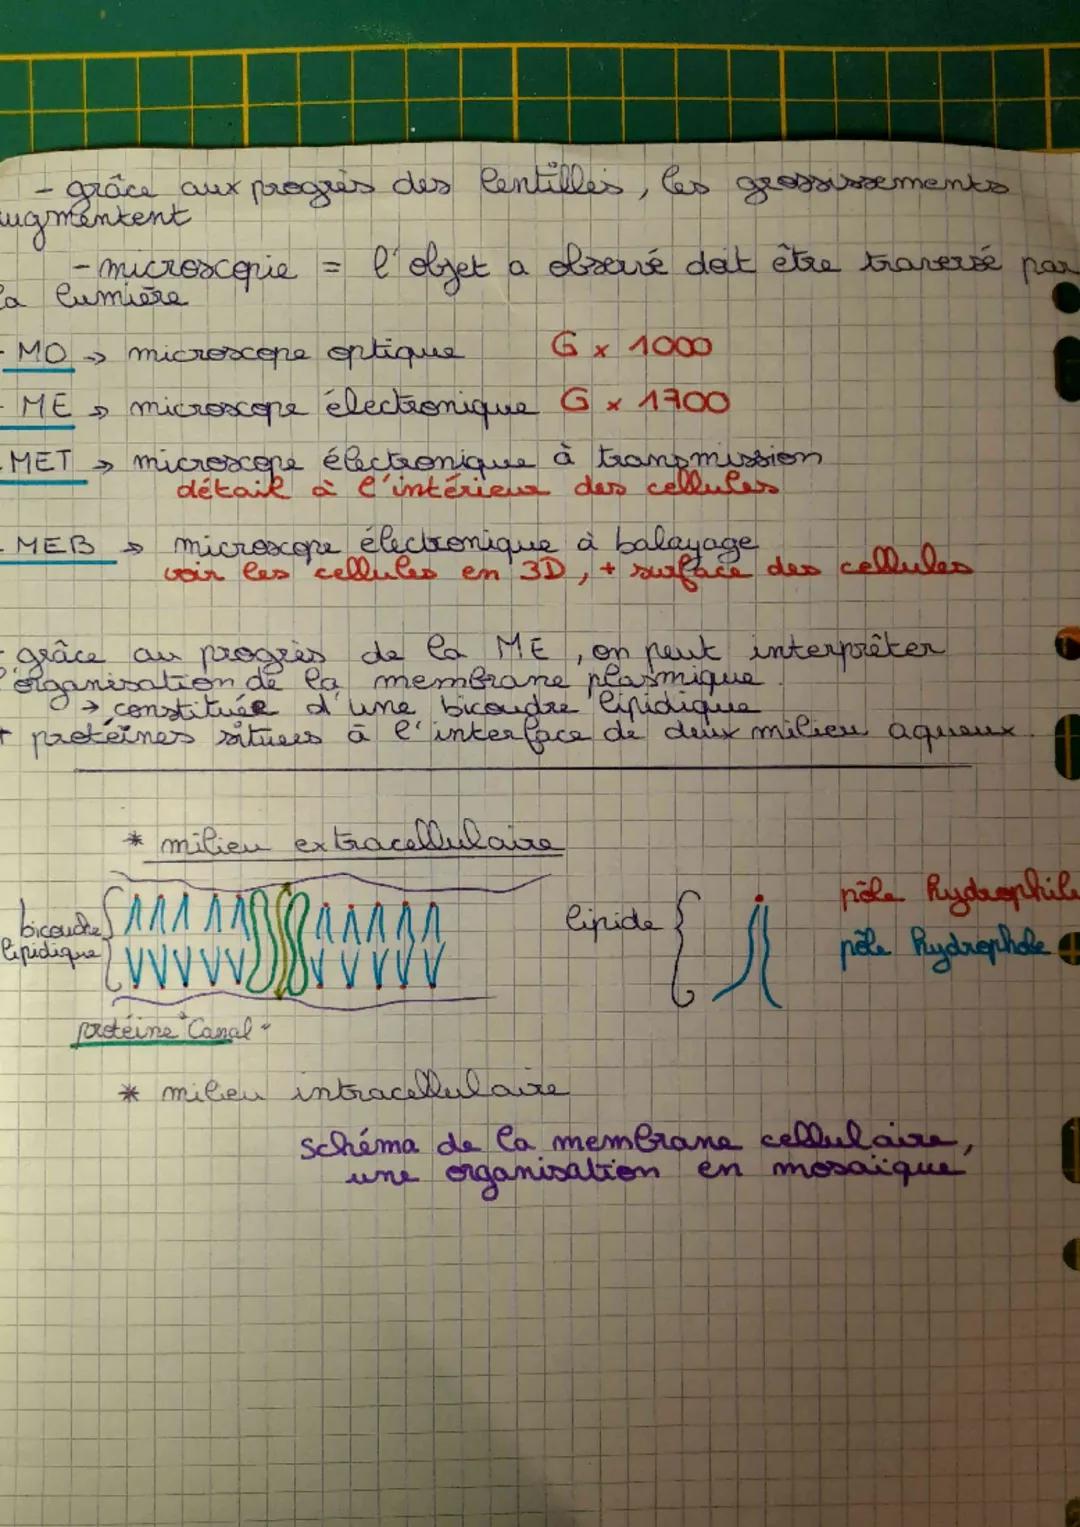 - grâce aux progrès des lentilles, les grossissements
augmentent
- microscopie = l'objet a observé doit être traversé par
la lumière
- MO → microscope optique G x 1000
- ME → microscope électronique G x 1700
- MET → microscope électronique à transmission
détail à l'intérieur des cellules
- MEB → microscope électronique à balayage
voir les cellules en 3D, + surface des cellules
- grâce au progrès de la ME, on peut interprêter
l'organisation de la membrane plasmique.
→ constituée d'une bicoudre lipidique
+ protéines situées à l'interface de deux milieu aqueux.
* milieu extracellulaire
bicouche
lipidique
lipide
pôle hydrophile
pôle hydrophobe
protéine "Canal"
* milieu intracellulaire
schéma de la membrane cellulaire,
une organisation en mosaïque